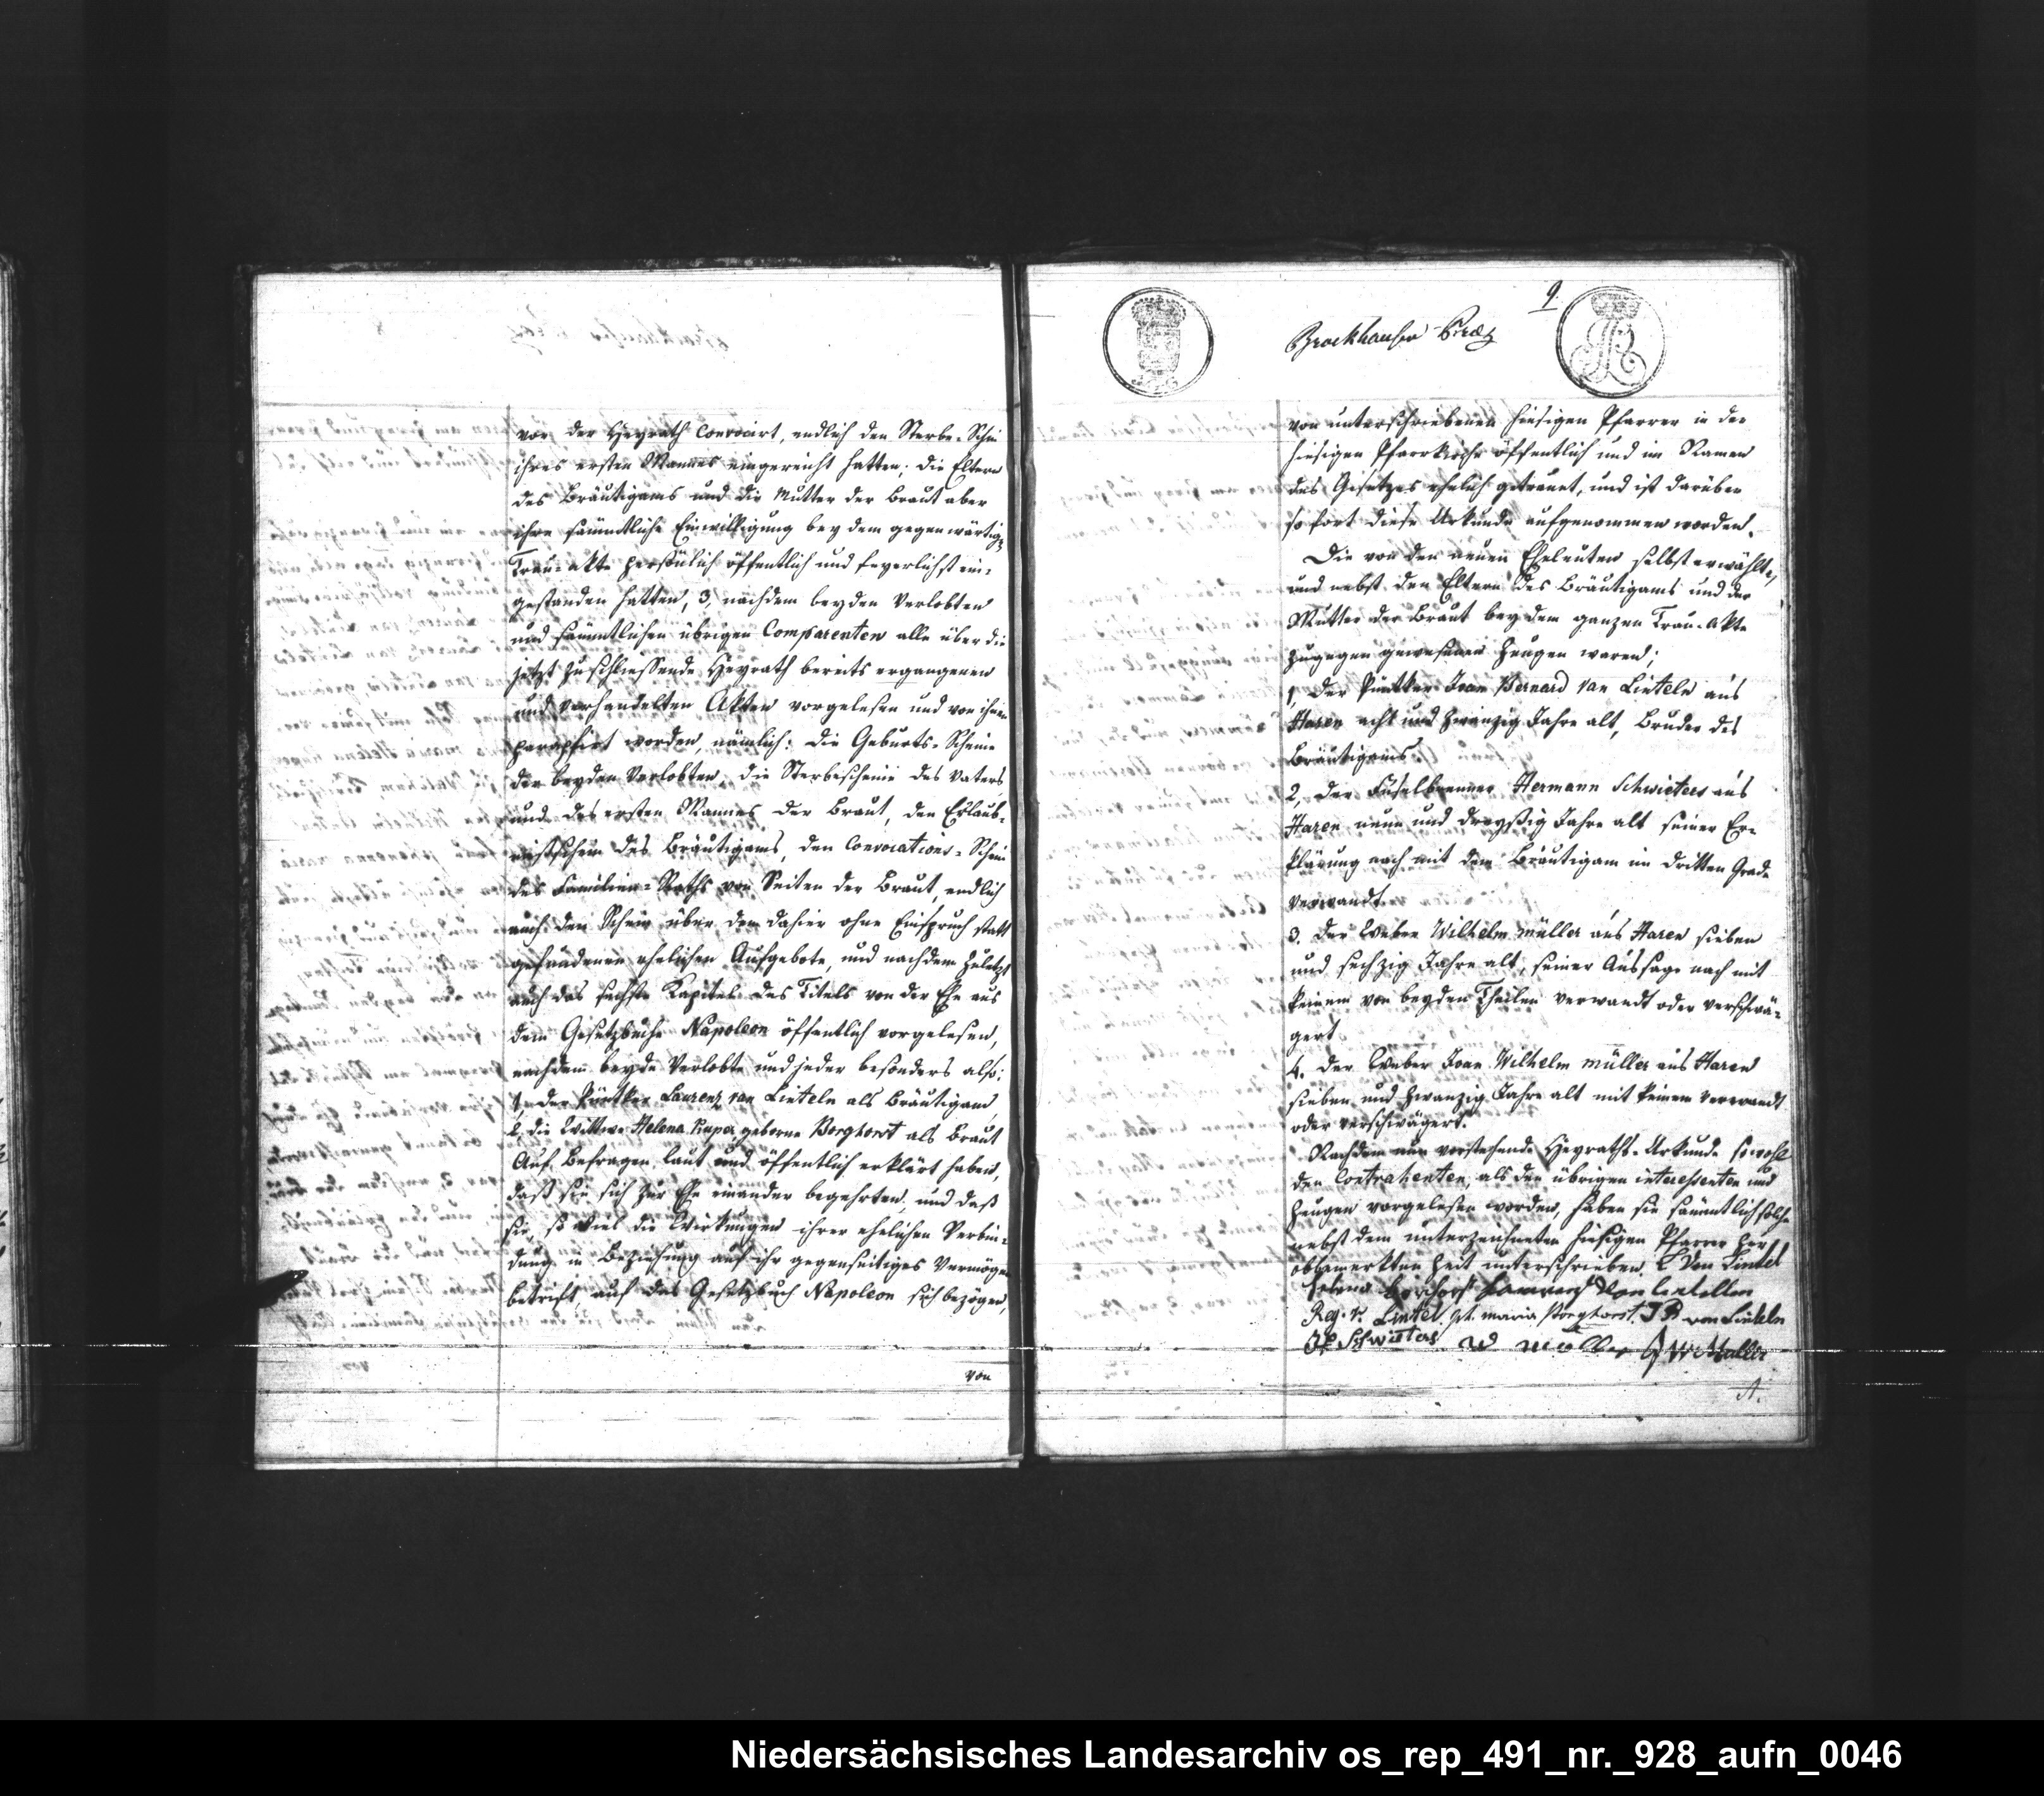 vor der Heyrath Convocirt, endlich den Sterbe-Schein
ihres ersten Mannes eingereicht hatten; die Eltern
des Bräutigams und die Mutter der Braut aber
ihre sämmtliche Einwilligung bey dem gegenwärtigen
Trau-akte persönlich öffentlich und feyerlichst ein-
gestanden hatten, 3, nachdem beyden Verlobten
und sämmtlichen übrigen Comparenten alle über die
jetzt zu schliessende Heyrath bereits ergangenen
und verhandelten Akten vorgelesen und von ihnen
paraphirt worden, nämlich: die Geburts-Scheine
der beyden Verlobten, die Sterbescheine des Vaters
und des ersten Mannes der Braut, den Erlaub-
nißschein des Bräutigams, den Convocations-Schein
des Familien-Raths von Seiten der Braut, endlich
auch den Schein über dem dahier ohne Einspruch statt
gefundenen ehelichen Aufgebote, und nachdem zuletzt
auch das sechste Kapitel des Titels von der Ehe aus
dem Gesetzbuche Napoleon öffentlich vorgelesen,
nachdem beyde Verlobte und jeder besonders also:
1, der Püntker Laurenz van Linteln als Bräutigam,
2, die Wittwe Helena Kuper geborne Borghorst als Braut
Auf Befragen laut und öffentlich erklärt haben,
daß sie sich zur Ehe einander begehrten, und daß
sie, so viel die Wirkungen ihrer ehelichen Verbin-
dung in Beziehung auf ihr gegenseitiges Vermögen
betrift, auf das Gesetzbuch Napoleon sich bezögen,
von
9.
Brockhausen
von unterschriebenen hiesigen Pfarrer in der
hiesigen Pfarrkirche öffentlich und im Namen
des Gesetzes ehelich getrauet, und ist darüber
sofort diese Urkunde aufgenommen worden.
Die von den neuen Eheleuten selbst erwählte,
und nebst den Eltern des Bräutigams und der
Mutter der Braut bey dem ganzen Trau-Akte
zugegen gewesenen Zeugen waren;
1, der Püntker Joan Bernard van Linteln aus
Haren acht und zwanzig Jahre alt, Bruder des
Bräutigams.
2, der Fuselbrenner Hermann Schwieters aus
Haren neun und dreyßig Jahre alt seiner Er-
klärung nach mit dem Bräutigam im dritten Grade
verwandt.
3. der Weber Wilhelm Müller aus Haren sieben
und sechzig Jahre alt, seiner Aussage nach mit
keinem von beyden Theilen verwandt oder verschwä-
gert
4. der Weber Joan Wilhelm Müller aus Haren
sieben und zwanzig Jahre alt mit keinem verwandt
oder verschwägert.
Nachdem nun vorstehende Heyraths-Urkunde sowohl
den Contrahenten, als den übrigen interessenten und
Zeugen vorgelesen worden, haben sie sämmtlich solche
nebst dem unterzeichneten hiesigen Pfarrer zur
obbemerkten Zeit unterschrieben. L Von Lintel
Helena borchorst Laurenz Van Lentellen
Reg. v. Lintel maria Borghorst. J B von Linteln
Schwieters W müller J W Müller